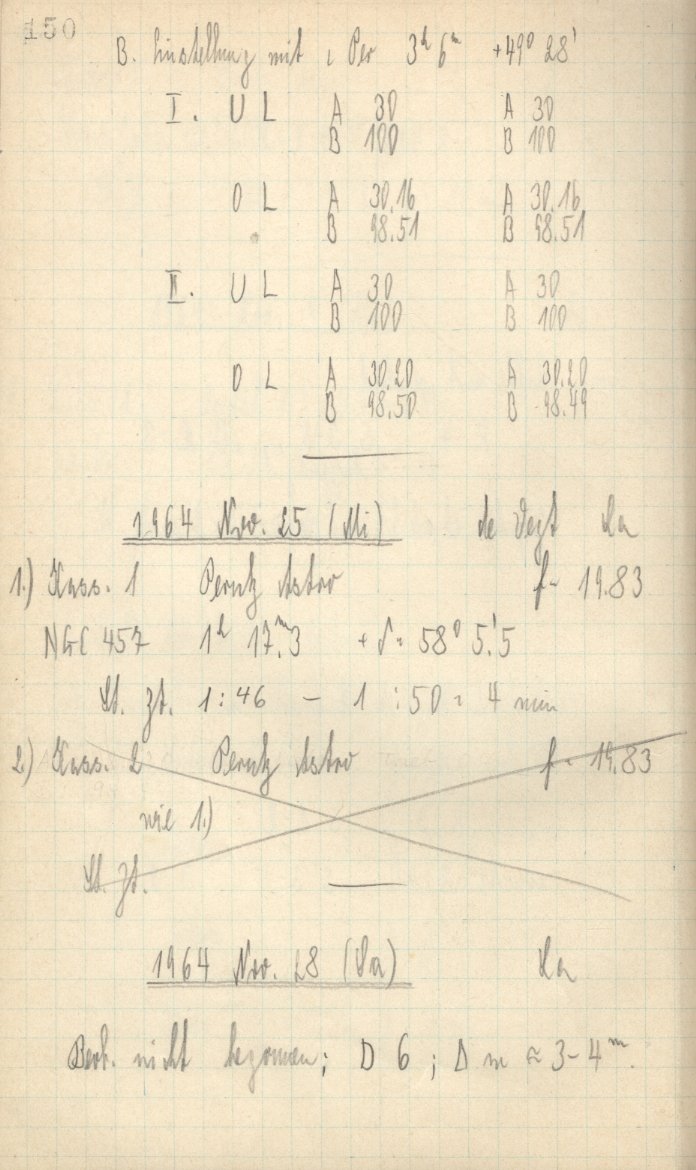 150
B. Einstellung mit ι Per 3ʰ 6ᵐ +49° 28'
I. U L A 30 A 30
B 100 B 100
O L A 30,16 A 30,16
B 98.51 B 98.51
II. U L A 30 A 30
B 100 B 100
O L A 30,20 A 30,20
B 98.50 B 98.49
1964 Nov. 25 (Mi) de Vegt
1.) Kass. 1 Perutz Astro f = 19.83
NGC 457 1ʰ 17ᵐ.3 + δ = 58° 5'.5
St. Zt. 1:46 – 1:50 = 4 min
2.) Kass. 2 Perutz Astro f = 19.83
wie 1.)
St. Zt.
1964 Nov. 28 (Sa)
Beob. nicht begonnen; D 6; Δ m ≈ 3–4ᵐ.